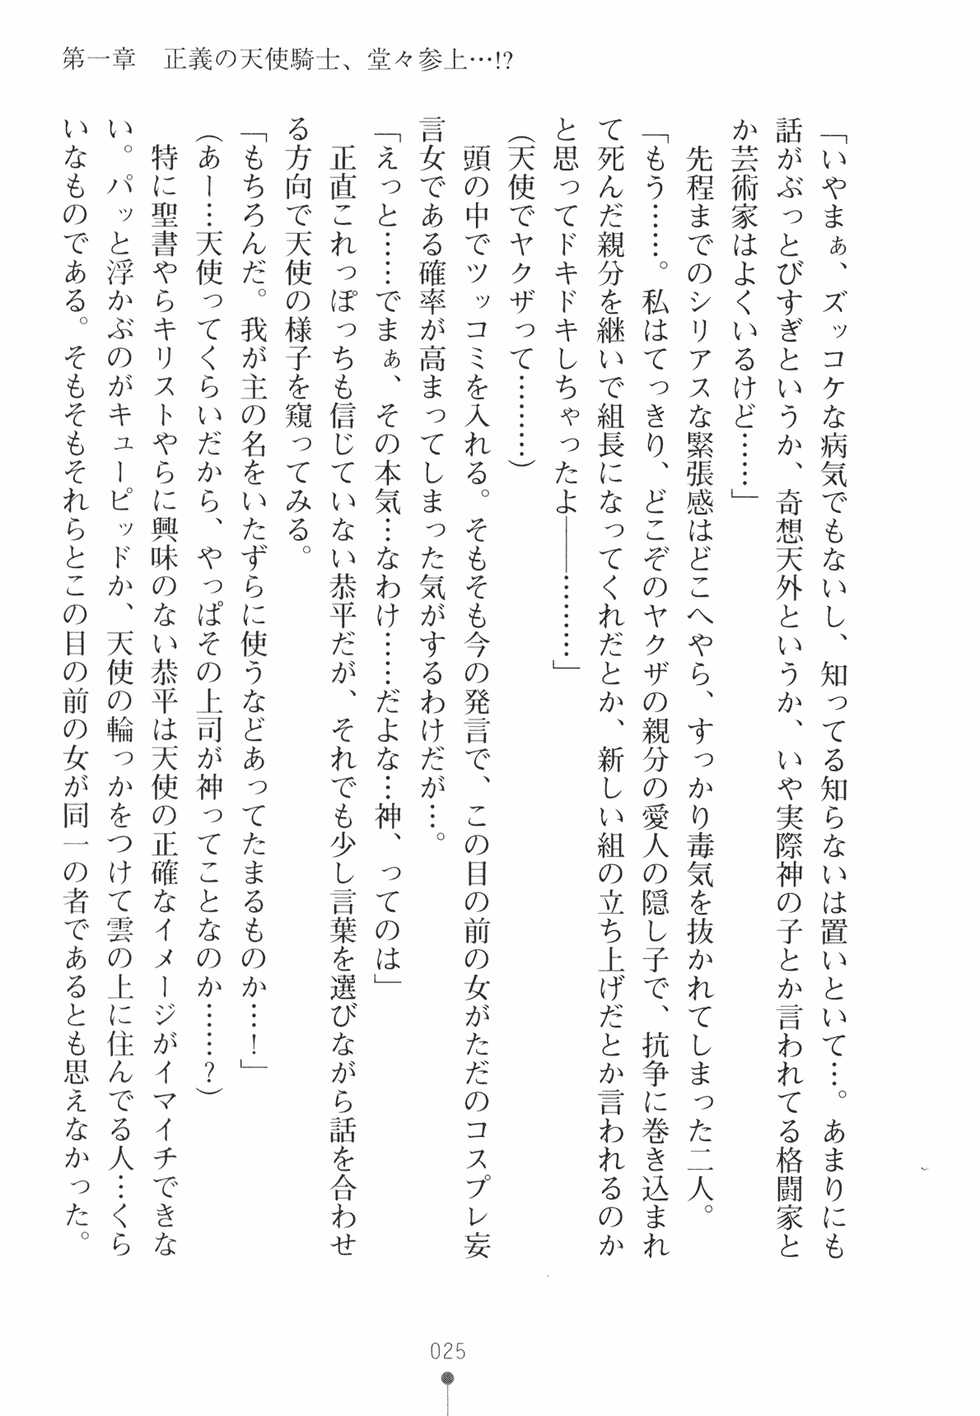 第一章　正義の天使騎士、堂々参上…!?
「いやまぁ、ズッコケな病気でもないし、知ってる知らないは置いといて…。あまりにも
話がぶっとびすぎというか、奇想天外というか、いや実際神の子とか言われてる格闘家と
か芸術家はよくいるけど……」
　先程までのシリアスな緊張感はどこへやら、すっかり毒気を抜かれてしまった二人。
「もう……。私はてっきり、どこぞのヤクザの親分の愛人の隠し子で、抗争に巻き込まれ
て死んだ親分を継いで組長になってくれだとか、新しい組の立ち上げだとか言われるのか
と思ってドキドキしちゃったよ――………」
（天使でヤクザって………）
　頭の中でツッコミを入れる。そもそも今の発言で、この目の前の女がただのコスプレ妄
言女である確率が高まってしまった気がするわけだが…。
「えっと……でまぁ、その本気…なわけ……だよな…神、ってのは」
　正直これっぽっちも信じていない恭平だが、それでも少し言葉を選びながら話を合わせ
る方向で天使の様子を窺ってみる。
「もちろんだ。我が主の名をいたずらに使うなどあってたまるものか…！」
（あー…天使ってくらいだから、やっぱその上司が神ってことなのか……？）
　特に聖書やらキリストやらに興味のない恭平は天使の正確なイメージがイマイチできな
い。パッと浮かぶのがキューピッドか、天使の輪っかをつけて雲の上に住んでる人…くら
いなものである。そもそもそれらとこの目の前の女が同一の者であるとも思えなかった。
025